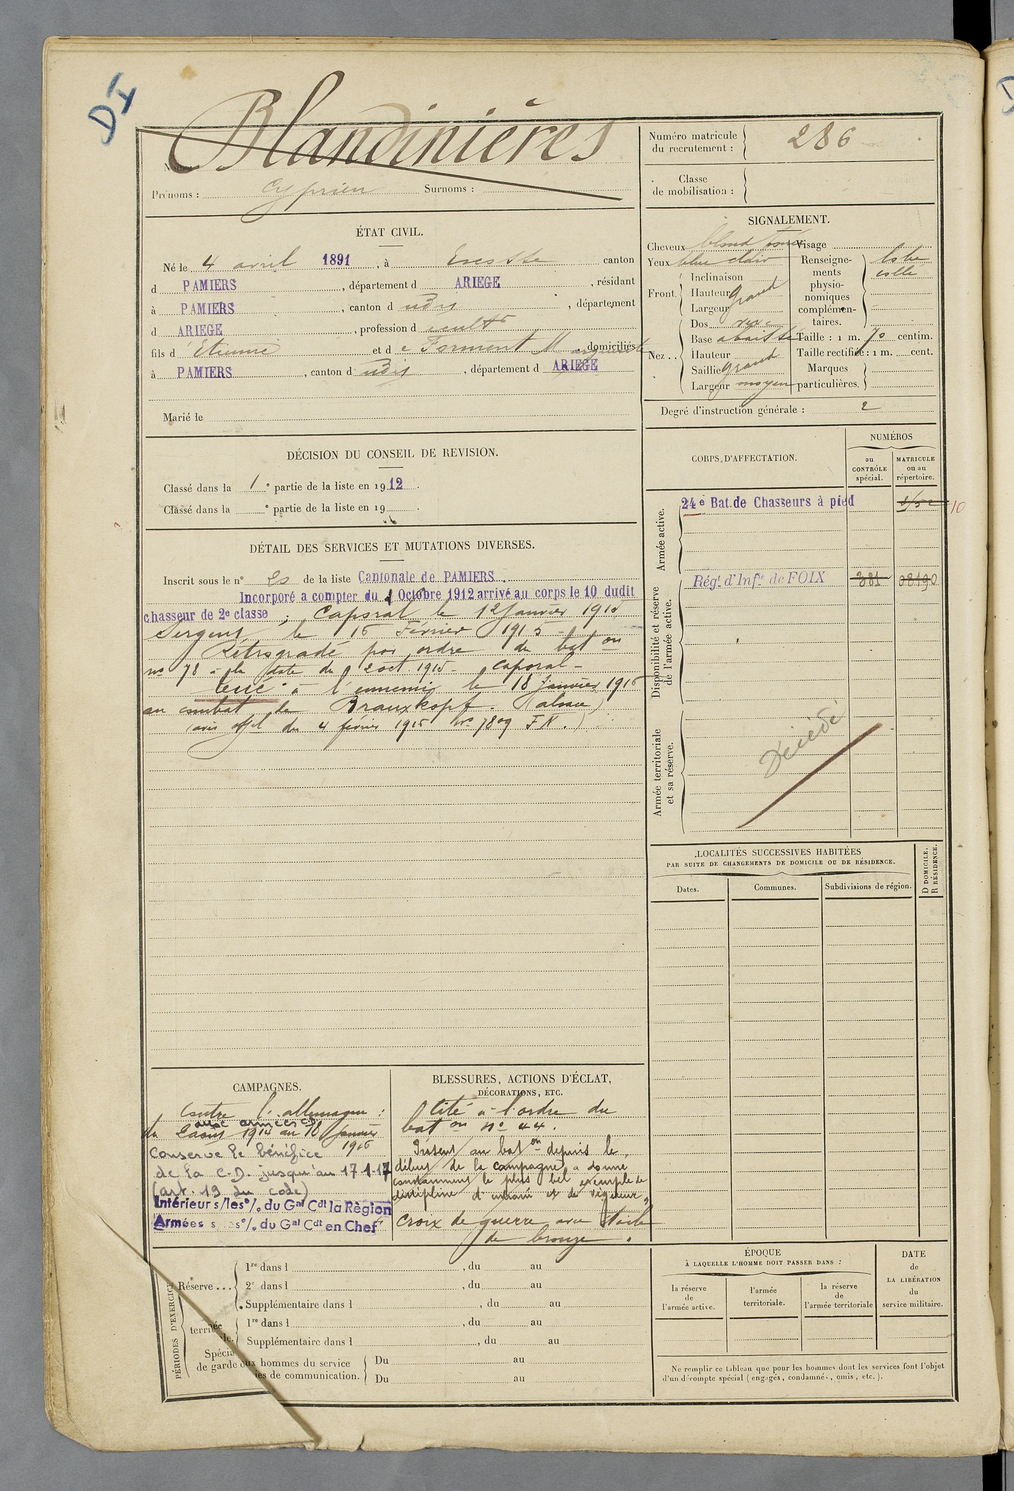 DI
Blandinières
Prénoms : Cyprien Surnoms :
Numéro matricule du recrutement : 286
Classe de mobilisation :
ÉTAT CIVIL.
Né le 4 avril 1891, à canton
d PAMIERS, département d ARIEGE, résidant
à PAMIERS, canton d udis, département
d ARIEGE, profession d
fils d Etienne et de Forment domiciliés
à PAMIERS, canton d udis, département d ARIEGE
Marié le
SIGNALEMENT.
Cheveux blond Visage
Yeux bleu clair
Front. Inclinaison
Hauteur grand
Largeur
Nez... Dos
Base
Hauteur
Saillie grand
Largeur moyen
Renseignements physionomiques complémentaires. lobe collé
Taille : 1 m. 70 centim.
Taille rectifiée : 1 m. cent.
Marques particulières.
Degré d'instruction générale : 2
DÉCISION DU CONSEIL DE REVISION.
Classé dans la 1e partie de la liste en 1912
Classé dans la e partie de la liste en 19
DÉTAIL DES SERVICES ET MUTATIONS DIVERSES.
Inscrit sous le n° 20 de la liste Cantonale de PAMIERS.
Incorporé a compter du 1 Octobre 1912 arrivé au corps le 10 dudit
chasseur de 2e classe, Caporal le 12 janvier 1914
Sergent le 16 Février 1915
Rétrogradé par ordre du bat on
n° 78 à la date du 2 oct. 1915 - caporal -
tué à l'ennemi le 18 janvier 1916
au combat de Brauxkopf. (alsace)
(avis offel du 4 février 1916 No 7809 F.N.)
CORPS D'AFFECTATION.
NUMÉROS
au CONTRÔLE spécial.
MATRICULE ou au répertoire.
Armée active.
24e Bat. de Chasseurs à pied 10
Disponibilité et réserve de l'armée active.
Régt. d'Infie de FOIX 381
Armée territoriale et sa réserve.
Décédé
LOCALITÉS SUCCESSIVES HABITÉES
PAR SUITE DE CHANGEMENTS DE DOMICILE OU DE RÉSIDENCE.
Dates. Communes. Subdivisions de région. D DOMICILE. R RÉSIDENCE.
CAMPAGNES.
Contre l'allemagne :
aux armées
du 2 août 1914 au 18 janvier
1916
Conserve le bénéfice
de la C.D. jusqu'au 17-1-17
(art. 19 du code)
Intérieur s/les o/. du Gal Cdt la Région
Armées s/les o/. du Gal Cdt en Chef
BLESSURES, ACTIONS D'ÉCLAT,
DÉCORATIONS, ETC.
Cité à l'ordre du
bat on n° 44.
Présent au bat on depuis le
début de la campagne, a donné
constamment le plus bel exemple de
discipline d'entrain et de vigueur,
Croix de guerre avec étoile
de bronze.
PÉRIODES D'EXERCICES
Réserve ... 1re dans l , du au
2e dans l , du au
Supplémentaire dans l , du au
1re dans l , du au
Supplémentaire dans l , du au
Du au
de garde aux hommes du service
de communication. Du au
ÉPOQUE
À LAQUELLE L'HOMME DOIT PASSER DANS :
la réserve de l'armée active.
l'armée territoriale.
la réserve de l'armée territoriale
DATE de LA LIBÉRATION du service militaire.
Ne remplir ce tableau que pour les hommes dont les services font l'objet
d'un décompte spécial (engagés, condamnés, omis, etc.).